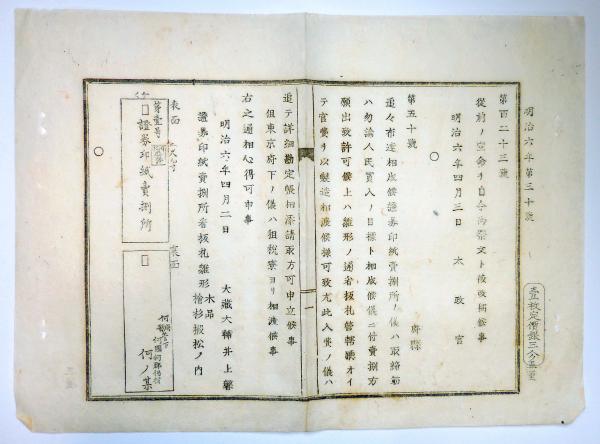 明治六年第三十號
第百二十三號
從前ノ皇命ヲ自今為祭文ト被改稱候事
明治六年四月三日 太政官
第五十號
府縣
追々布達相成候證券印紙賣捌所ノ儀ハ取締筋
ハ勿論人民買入ノ目標ト相成候儀ニ付賣捌方
願出致許可候上ハ雛形ノ通看板札管轄廳オイ
テ官費ヲ以製造相渡候様可致尤此入費ノ儀ハ
追テ詳細勘定帳相添請取方可申立候事
但東京府下ノ儀ハ租税寮ヨリ相渡候事
右之通相心得可申事
明治六年四月二日 大藏大輔井上馨
證券印紙賣捌所看板札雛形 木品
檜杉椴松ノ内
表面
第壹号
證券印紙賣捌所
裏面
何ノ某